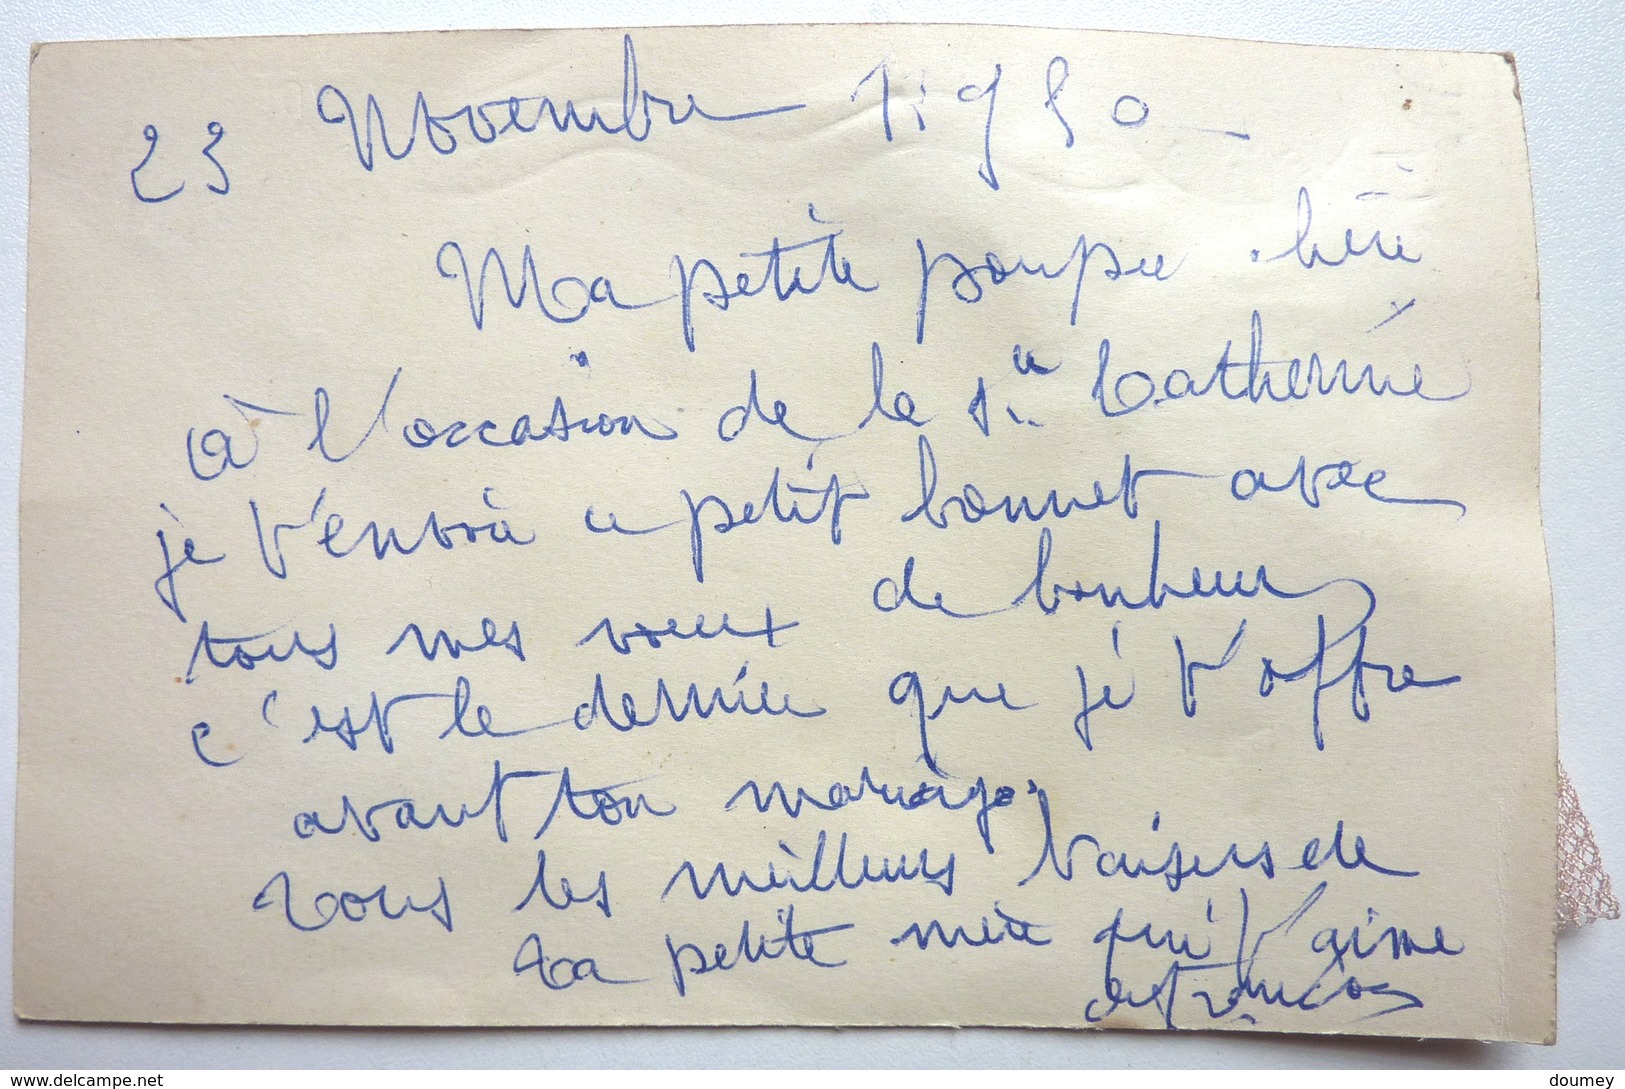 23 Novembre 1950
Ma petite poupée chérie
à l'occasion de la Ste Catherine
je t'envoie ce petit bonnet avec
tous mes voeux de bonheur
c'est le dernier que je t'offre
avant ton mariage.
Tous les meilleurs baisers de
ta petite mère qui t'aime
de
www.delcampe.net
doumey